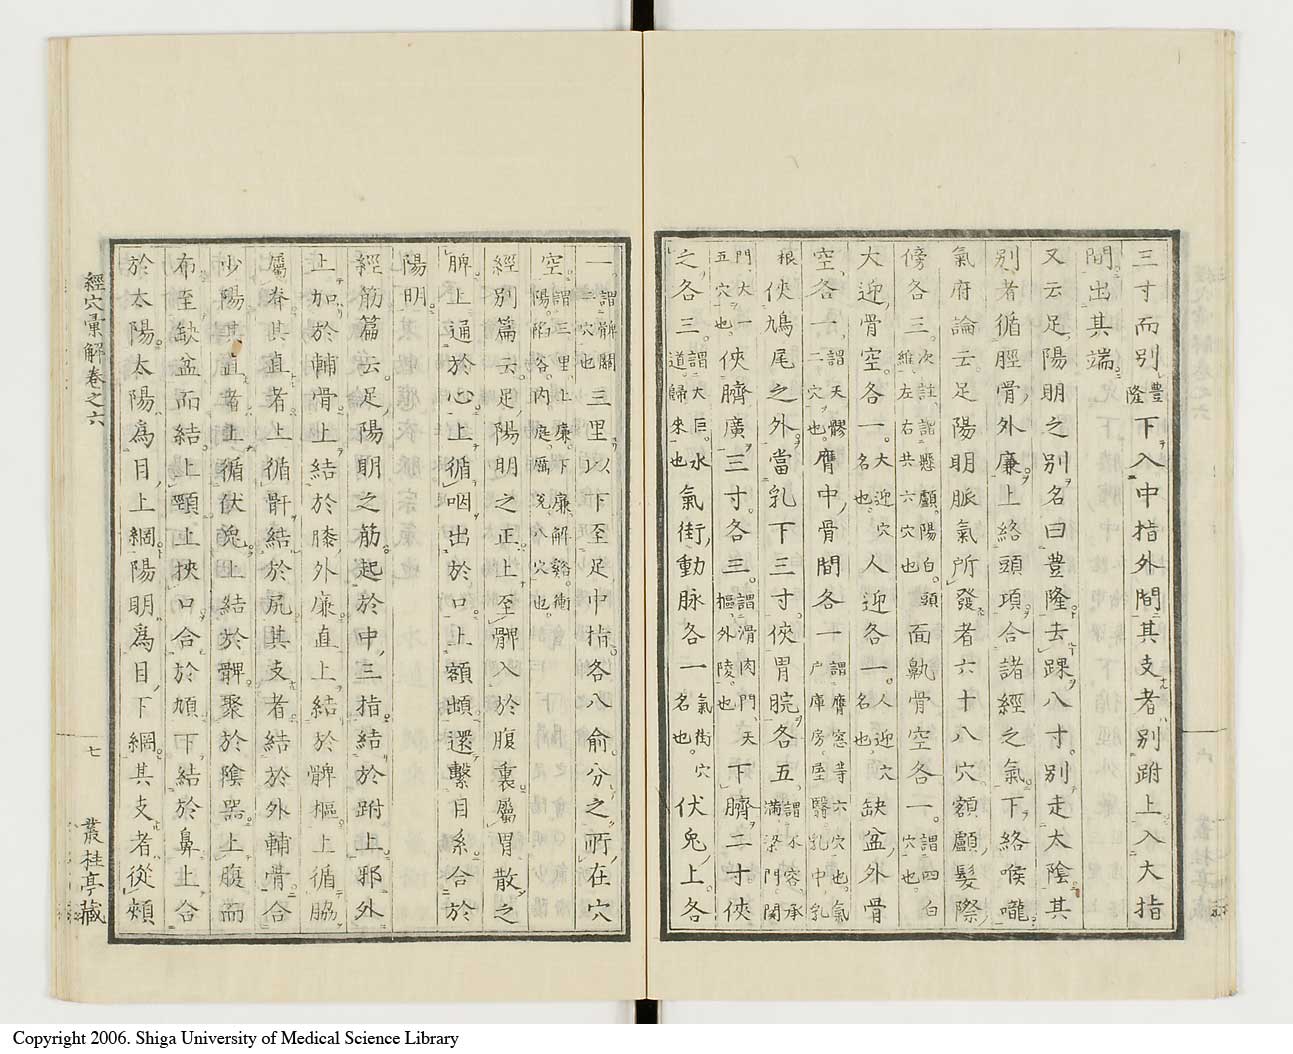 三寸而別豐隆下入中指外間其支者別跗上入大指
間出其端
又云足陽明之別名曰豊隆去踝八寸別走太陰其
別者循脛骨外廉上絡頭項合諸經之氣下絡喉嚨
氣府論云足陽明脈氣所發者六十八穴額顱髮際
傍各三次註謂懸顱陽白頭維左右共六穴也面鼽骨空各一謂四白穴也
大迎骨空各一大迎穴名也人迎各一人迎穴名也缺盆外骨
空各一謂天髎二穴也膺中骨間各一謂膺窓等六穴也氣戶庫房屋翳乳中乳
根俠鳩尾之外當乳下三寸俠胃脘各五謂不容承滿梁門関
門大一五穴也俠臍廣三寸各三謂滑肉門天樞外陵也下臍二寸俠
之各三謂大巨水道歸來也氣街動脉各一氣街穴名也伏兎上各
一謂髀關二穴也三里以下至足中指各八俞分之所在穴
空謂三里上廉下廉解谿衝陽陷谷內庭厲兌八穴也
經別篇云足陽明之正上至髀入於腹裏屬胃散之
脾上通於心上循咽出於口上額䪼還繫目系合於
陽明
經筋篇云足陽明之筋起於中三指結於跗上邪外
上加於輔骨上結於膝外廉直上結於髀樞上循脇
屬脊其直者上循骭結於尻其支者結於外輔骨合
少陽其直者上循伏兎上結於髀聚於陰器上腹而
布至缺盆而結上頸上挾口合於頄下結於鼻上合
於太陽太陽爲目上綱陽明爲目下綱其支者從頰
經穴彙解卷之六
七
叢桂亭藏
Copyright 2006. Shiga University of Medical Science Library